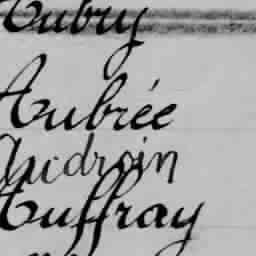 Aubry
Aubrée
Audroin
Auffray